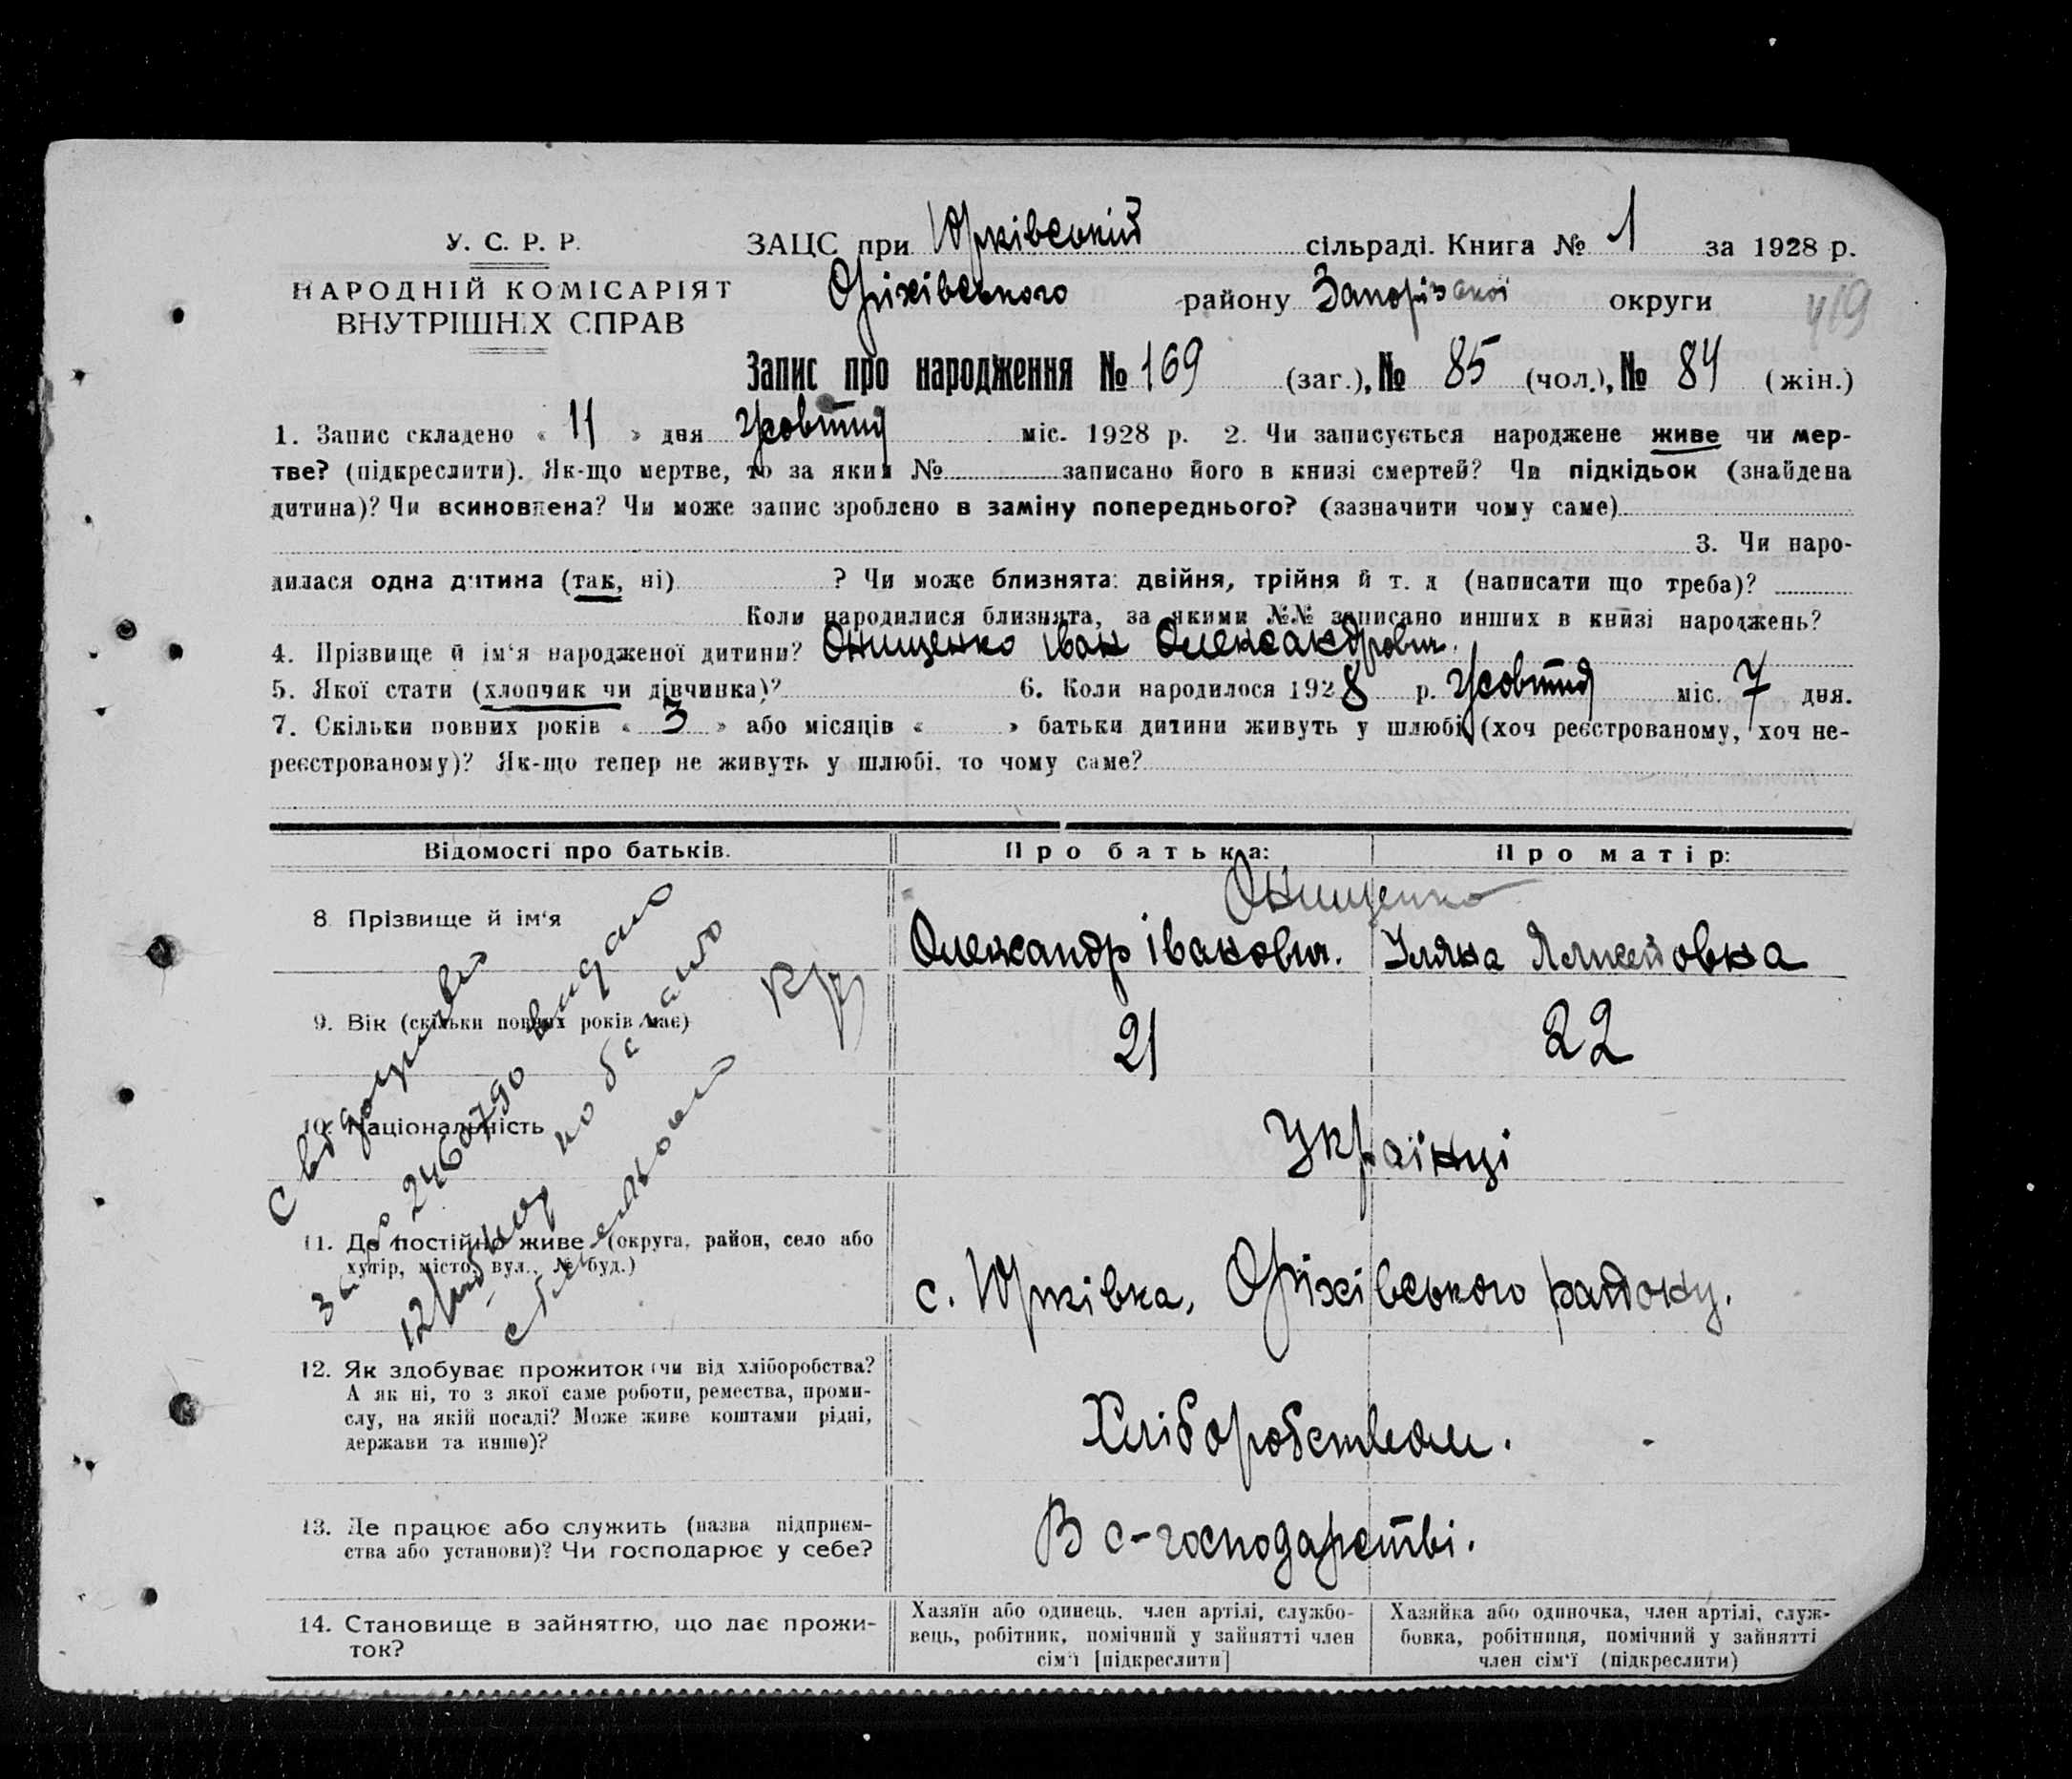 У. С. Р. Р.
НАРОДНІЙ КОМІСАРІЯТ
ВНУТРІШНІХ СПРАВ
ЗАЦС при Юрківській сільраді. Книга № 1 за 1928 р.
Оріхівського району Запорізької округи
419
Запис про народження № 169 (заг.), № 85 (чол.), № 84 (жін.)
1. Запис складено « 11 » дня Жовтня міс. 1928 р. 2. Чи записується народжене живе чи мер-
тве? (підкреслити). Як-що мертве, то за яким № записано його в книзі смертей? Чи підкідьок (знайдена
дитина)? Чи всиновлена? Чи може запис зроблено в заміну попереднього? (зазначити чому саме)
3. Чи наро-
дилася одна дитина (так, ні) ? Чи може близнята: двійня, трійня й т. д (написати що треба)?
Коли народилися близнята, за якими №№ записано инших в книзі народжень?
4. Прізвище й ім'я народженої дитини? Онищенко Іван Олександрович.
5. Якої стати (хлопчик чи дівчинка)? 6. Коли народилося 1928 р. Жовтня міс. 7 дня.
7. Скільки повних років « 3 » або місяців « » батьки дитини живуть у шлюбі (хоч реєстрованому, хоч не-
реєстрованому)? Як-що тепер не живуть у шлюбі, то чому саме?
Відомості про батьків. Про батька: Про матір:
8. Прізвище й ім'я
Онищенко
Олександр Іванович. Уляна овна
9. Вік (скільки повних років має) 21 22
10. Національність Українці
11. Де постійно живе (округа, район, село або
хутір, місто, вул., № буд.)
с. Юрківка, Оріхівського району.
12. Як здобуває прожиток (чи від хліборобства?
А як ні, то з якої саме роботи, ремества, проми-
слу, на якій посаді? Може живе коштами рідні,
держави та инше)?
Хліборобством.
13. Де працює або служить (назва підприєм-
ства або установи)? Чи господарює у себе?
В с-господарстві.
14. Становище в зайняттю, що дає прожи-
ток?
Хазяїн або одинець, член артілі, службо-
вець, робітник, помічний у зайнятті член
сім'ї [підкреслити]
Хазяйка або одиночка, член артілі, служ-
бовка, робітниця, помічний у зайнятті
член сім'ї (підкреслити)
за № 2460790 видано